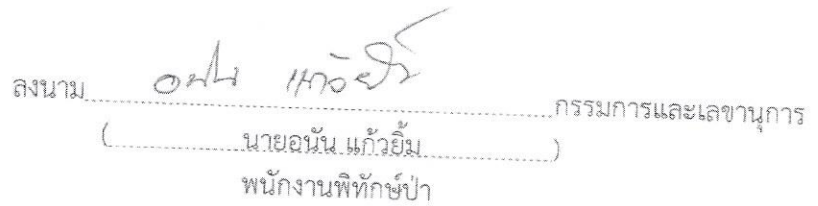 ลงนาม อนัน แก้วยิ้ม กรรมการและเลขานุการ
( นายอนัน แก้วยิ้ม )
พนักงานพิทักษ์ป่า